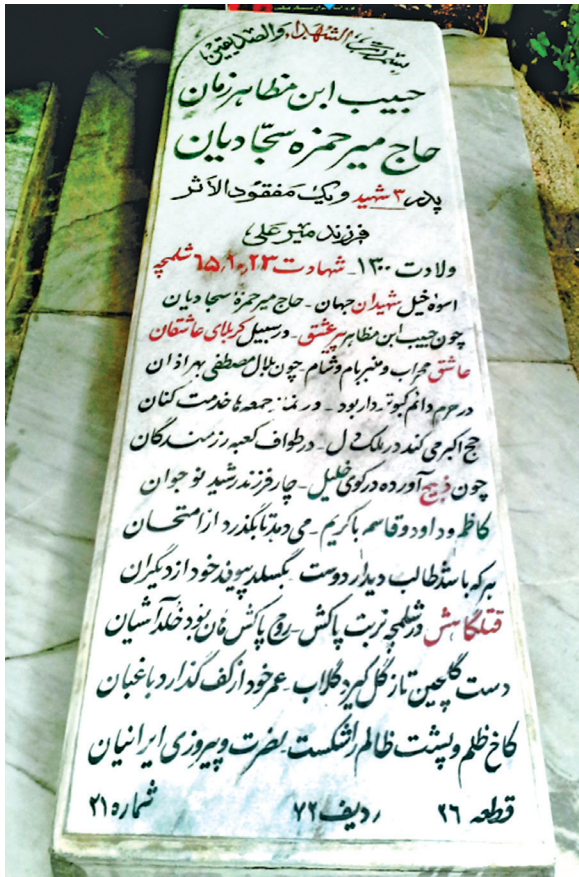 بسم رب الشهداء والصدیقین
حبیب ابن مظاهر زمان
حاج میر حمزه سجادیان
پدر ۳ شهید ویک مفقودالاثر
فرزند میرعلی
ولادت ۱۳۰۰ - شهادت ۲۳ر۱۰ر۶۵ شلمچه
اسوهٔ خیل شهیدان جهان - حاج میرحمزهٔ سجادیان
چون حبیب ابن مظاهر پیر عشق - در سبیل کربلای عاشقان
عاشق محراب و منبر بام و شام - چون بلال مصطفی بهر اذان
در حرم دائم کبوتر دار بود - در نماز جمعه ها خدمت کنان
حج اکبر می کند در ملک دل - در طواف کعبه رزمندگان
چون ذبیح آورده در کوی خلیل - چار فرزند رشید نوجوان
کاظم و داود و قاسم با کریم - می دهد تا بگذرد از امتحان
هر که باشد طالب دیدار دوست - بگسلد پیوند خود از دیگران
قتلگاهش در شلمچه تربت پاکش - روح پاکش بود خلد آشیان
دست گلچین تا ز گل گیرد گلاب - عمر خود از کف گذارد باغبان
کاخ ظلم و پشت ظالم را شکست - نصرت و پیروزی ایرانیان
قطعه ۲۶ ردیف ۷۲ شماره ۲۱